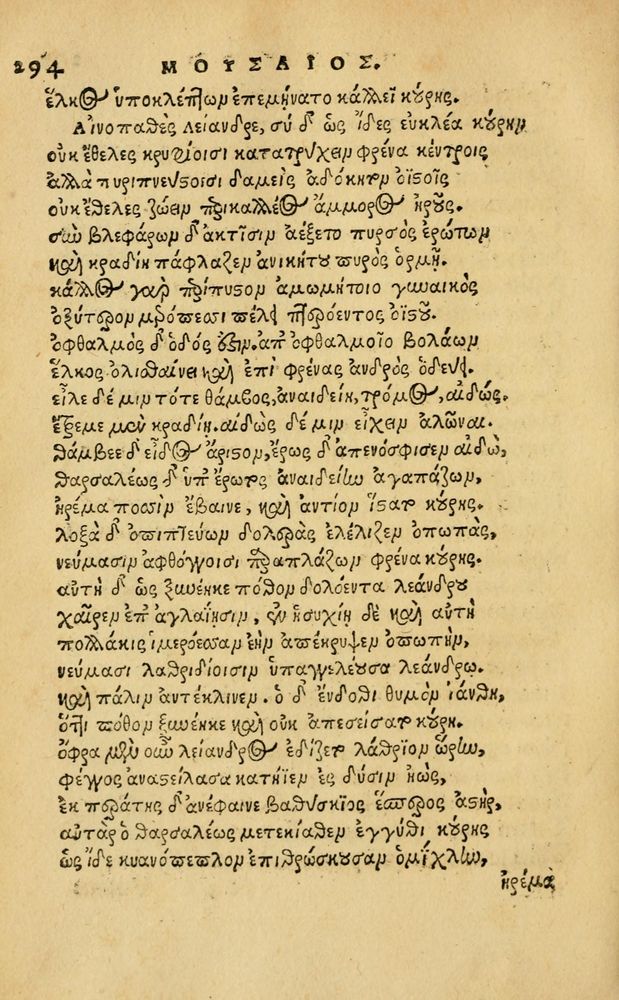 294 ΜΟΥΣΑΙΟΣ.
ἕλκος ὑποκλέπτων ἐπεμήνατο κάλλεϊ κούρης.
Αἰνοπαθὲς λείανδρε, σὺ δ' ὡς ἴδες εὐκλέα κούρην
οὐκ ἔθελες κρυφίοισι κατατρύχειν φρένα κέντροις
ἀλλὰ πυριπνεύστοισι δαμεὶς ἀδόκητον ὀϊστοῖς
οὐκ ἔθελες ζώειν περικαλλέος ἄμμορος ἡροῦς.
σὺν βλεφάρων δ' ἀκτῖσιν ἀέξετο πυρσὸς ἐρώτων
καὶ κραδίη πάφλαζεν ἀνικήτου πυρὸς ὁρμῇ.
κάλλος γὰρ περίπυστον ἀμωμήτοιο γυναικὸς
ὀξύτερον μερόπεσσι πέλει πτερόεντος ὀϊστοῦ.
ὀφθαλμὸς δ' ὁδός ἐστιν. ἀπ' ὀφθαλμοῖο βολάων
ἕλκος ὀλισθαίνει καὶ ἐπὶ φρένας ἀνδρὸς ὁδεύει.
εἷλε δέ μιν τότε θάμβος, ἀναιδείη, τρόμος, αἰδώς.
ἔτρεμε μὲν κραδίη. αἰδὼς δέ μιν εἶχεν ἁλῶναι.
θάμβεε δ' εἶδος ἄριστον, ἔρως δ' ἀπενόσφισεν αἰδῶ,
θαρσαλέως δ' ὑπ' ἔρωτος ἀναιδείην ἀγαπάζων,
ἠρέμα ποσσὶν ἔβαινε, καὶ ἀντίον ἵστατο κούρης.
λοξὰ δ' ὀπιπτεύων δολερὰς ἐλέλιζεν ὀπωπὰς,
νεύμασιν ἀφθόγγοισι παραπλάζων φρένα κούρης.
αὐτὴ δ' ὡς ξυνέηκε πόθον δολόεντα λεάνδρου
χαῖρεν ἐπ' ἀγλαΐῃσιν, ἐν ἡσυχίῃ δὲ καὶ αὐτὴ
πολλάκις ἱμερόεσσαν ἑὴν ἀπέκρυψεν ὀπωπὴν,
νεύμασι λαθριδίοισιν ὑπαγγέλλουσα λεάνδρῳ.
καὶ πάλιν ἀντέκλινεν. ὁ δ' ἔνδοθι θυμὸν ἰάνθη,
ὅττι πόθον ξυνέηκε καὶ οὐκ ἀπεσείσατο κούρη.
ὄφρα μὲν οὖν λείανδρος ἐδίζετο λάθριον ὥρην,
φέγγος ἀναστείλασα κατήϊεν ἐς δύσιν ἠὼς,
ἐκ περάτης δ' ἀνέφαινε βαθύσκιος ἕσπερος ἀστὴρ,
αὐτὰρ ὁ θαρσαλέως μετεκίαθεν ἐγγύθι κούρης
ὡς ἴδε κυανόπεπλον ἐπιθρώσκουσαν ὀμίχλην,
ἠρέμα